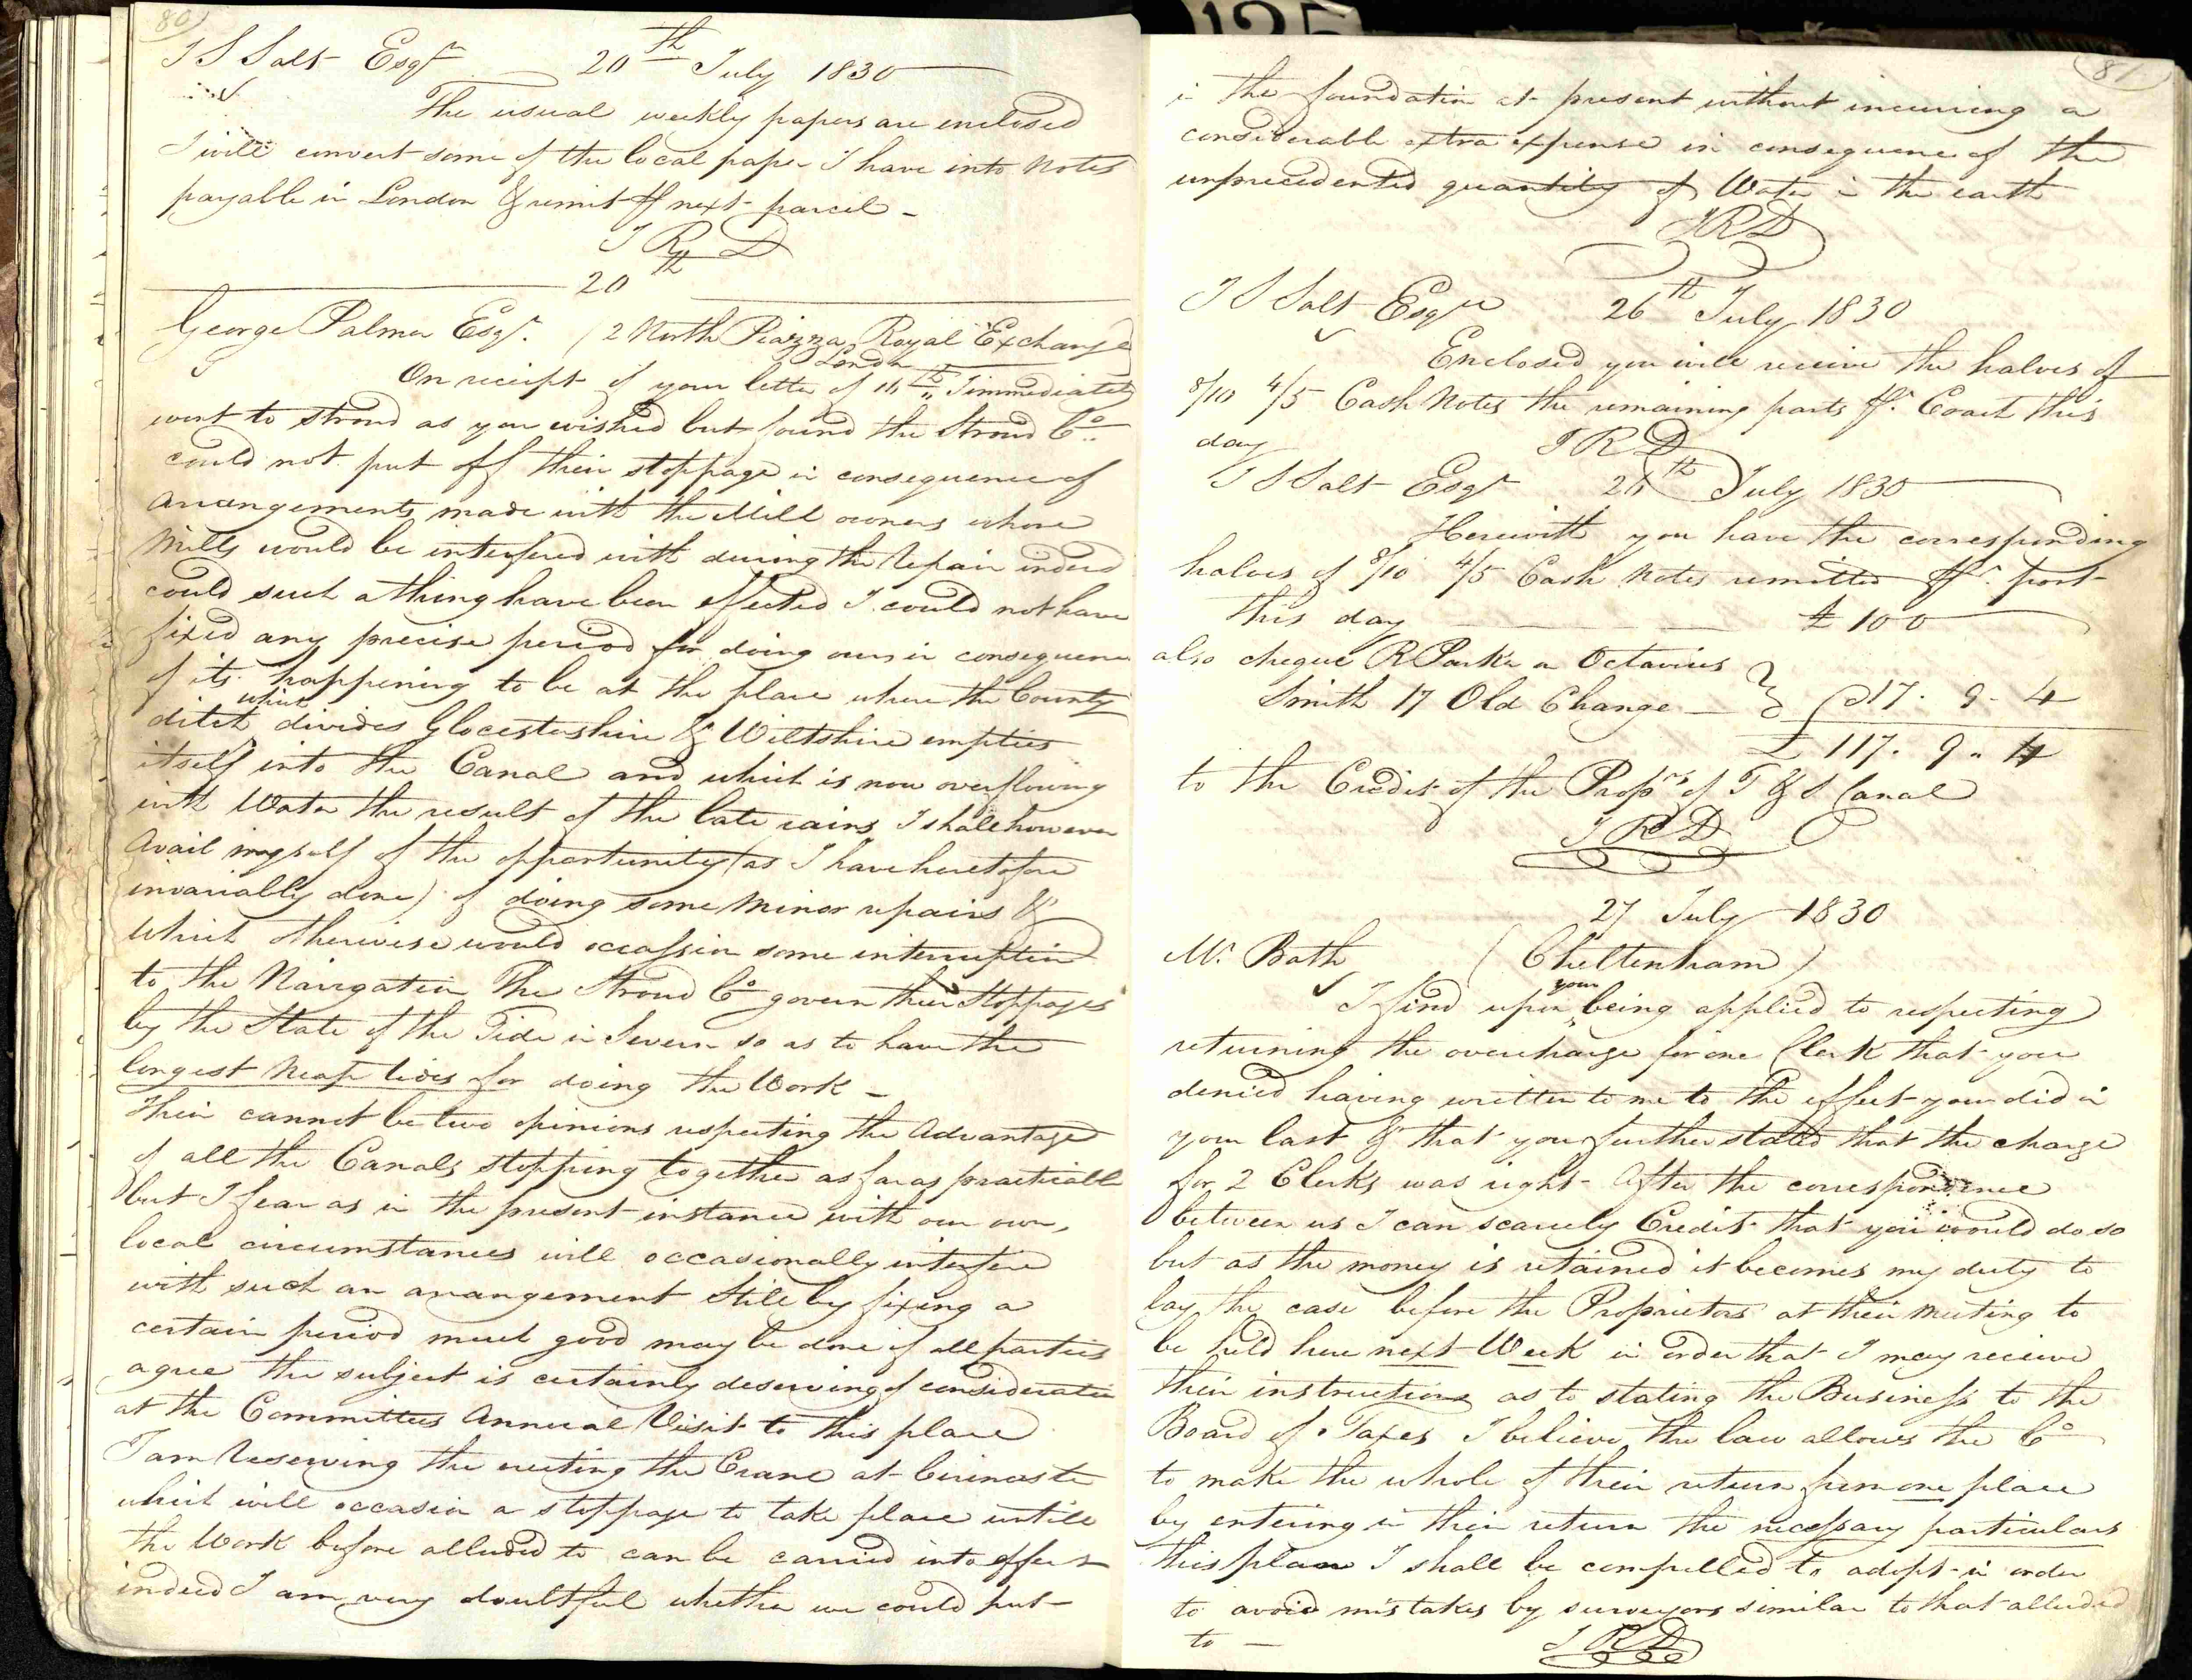 80
J S Salt Esqr 20th July 1830
The usual weekly papers are enclosed
I will convert some of the local paper I have into Notes
payable in London & remit pr next parcel -
J R D
20th
George Palmer Esqr. (2 North Piazza Royal Exchange
London
On receipt of your letter of 16th I immediately
went to Stroud as you wished but found the Stroud Co..
could not put off their stoppage in consequence of
arrangements made with the Mill owners whose
Mills would be interfered with during the repair indeed
could such a thing have been effected I could not have
fixed any precise period for doing ours in consequence
of its happening to be at the place where the County
ditch which divides Glocestershire & Wiltshire empties
itself into the Canal and which is now overflowing
with Water the result of the late rains I shall however
avail myself of the opportunity (as I have heretofore
invariably done) of doing some minor repairs &
which otherwise would occassion some interruption
to the Navigation The Stroud Co govern their Stoppages
by the State of the Tide in Severn so as to have the
longest Neap tides for doing the Work -
Their cannot be two opinions respecting the Advantage
of all the Canals stopping together as far as practicable
but I fear as in the present instance with our own,
local circumstances will occasionally interfere
with such an arrangement Still by fixing a
certain period much good may be done if all parties
agree the subject is certainly deserving of consideration
at the Committees Annual Visit to this place
I am reserving the erecting the Crane at Cirencester
which will occasion a stoppage to take place untill
the Work before alluded to can be carried into effect
indeed I am very doubtful whether we could put
81
in the foundation at present without incurring a
considerable extra expense in consequence of the
unprecedented quantity of Water in the earth
JRD
J S Salt Esqre 26th July 1830
Enclosed you will receive the halves of
8/10 4/5 Cash Notes the remaining parts pr. Coach this
day
J R D
J S Salt Esqr 26th July 1830
Herewith you have the corresponding
halves of 8/10 4/5 Cash Notes remitted pr. post
this day £ 100
also cheque R Parker on Octavius
Smith 17 Old Change - } 17. 9. 4
£ 117. 9. 4
to the Credit of the Proprs of T & S Canal
J R D
27 July 1830
Mr. Bath (Cheltenham)
I find upon your being applied to respecting
returning the overcharge for one Clerk that you
denied having written to me to the effect you did in
your last & that you further stated that the charge
for 2 Clerks was right - After the correspondence
between us I can scarcely Credit that you would do so
but as the money is retained it becomes my duty to
lay the case before the Proprietors at their meeting to
be held here next Week in order that I may receive
their instructions as to stating the Business to the
Board of Taxes I believe the law allows the Co
to make the whole of their return from one place
by entering in their return the necessary particulars
this plan I shall be compelled to adopt in order
to avoid mistakes by surveyors similar to that alluded
to -
J R D